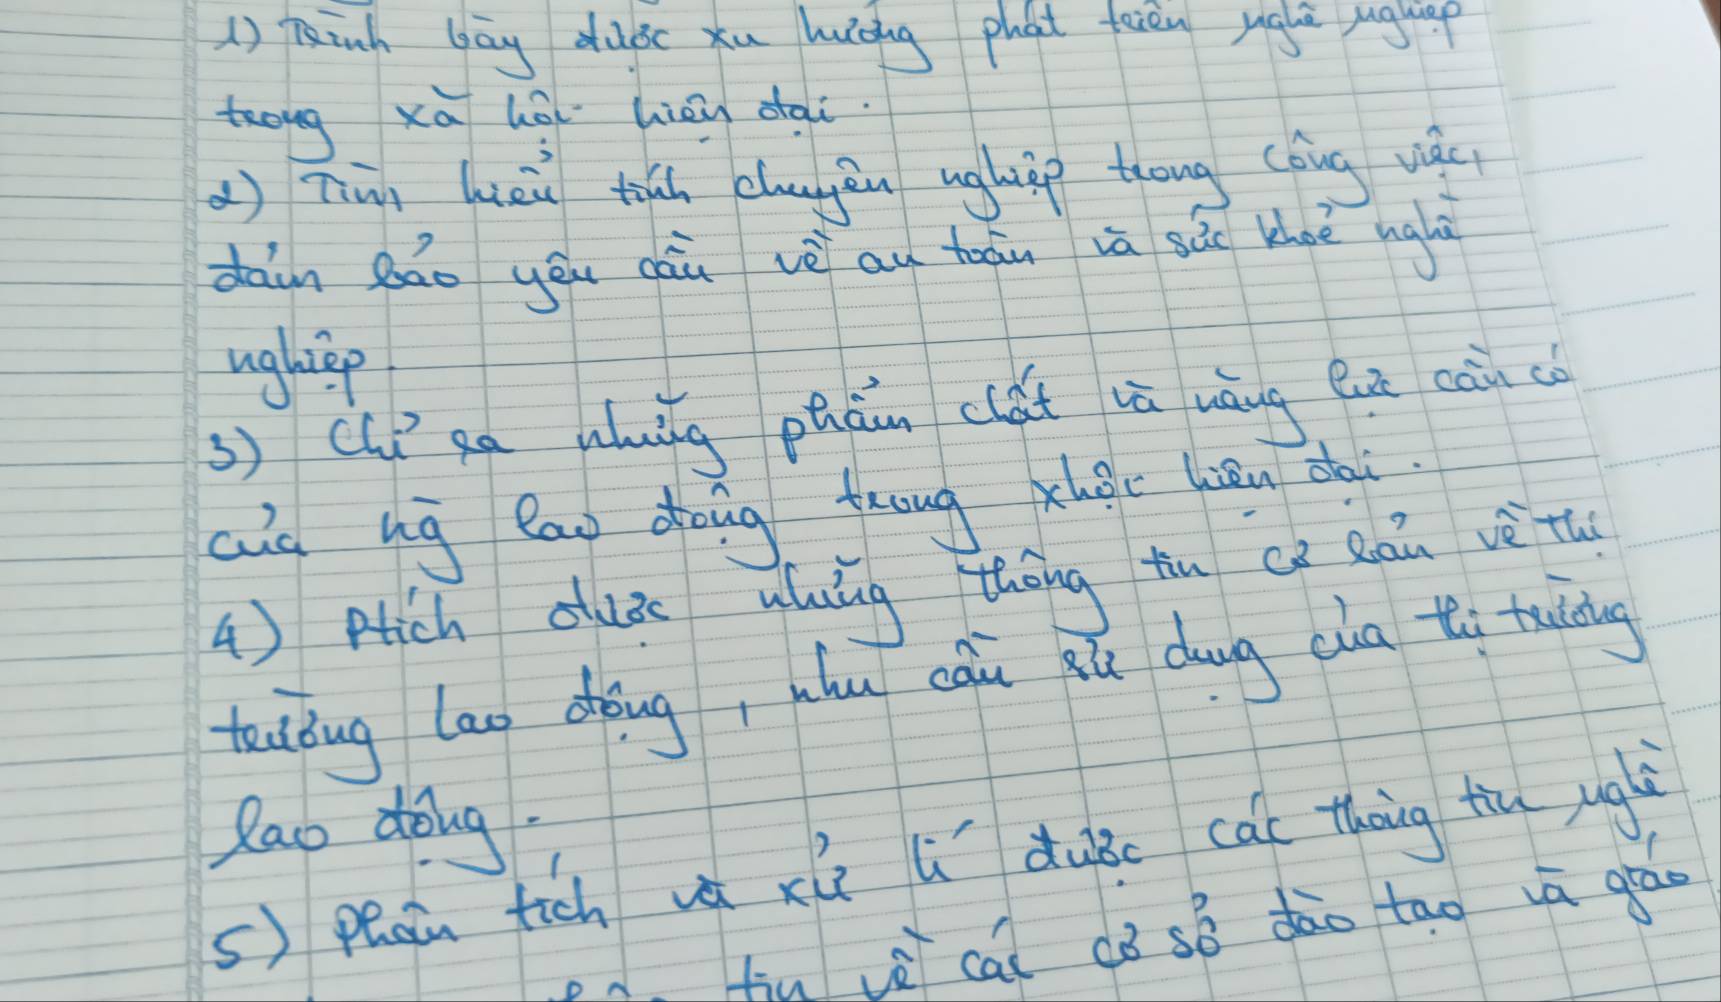 1) Trình bày được xu hướng phát triển nghề nghiệp
trong xã hội hiện đại.
2) Tìm hiểu tính chuyên nghiệp trong công việc,
đảm bảo yêu cầu về an toàn và sức khoẻ nghề
nghiệp.
3) Chỉ ra những phẩm chất và năng lực cần có
của ng̃ lao động trong xhội hiện đại.
4) ptích được những thông tin cơ bản về thị
trường lao động, nhu cầu sử dụng của thị trường
lao động.
5) Phân tích và xử lí được các thông tin nghề
tin về các cơ sở đào tạo và giáo